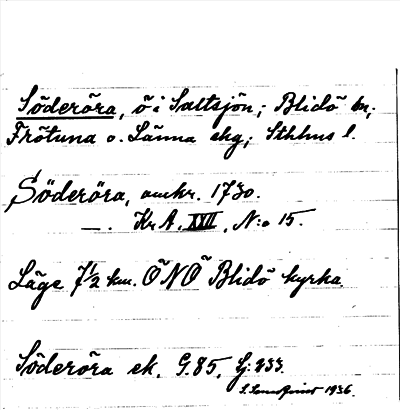 Söderöra, ö i Saltsjön; Blidö sn;
Frötuna o. Länna skg; Sthlms l.
Söderöra, omkr. 1730.
—. Kr. A. XXII. N:o 15.
Läge 7 1/2 km. ÖNÖ Blidö kyrka.
Söderöra ek. G. 85, Lj: 233.
1936.